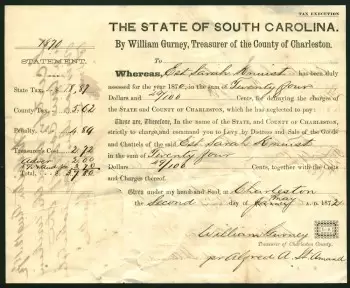 TAX EXECUTION
THE STATE OF SOUTH CAROLINA.
By William Gurney, Treasurer of the County of Charleston.
STATEMENT.
State Tax,
County Tax, 5.62
Penalty, 4.59
Treasurer's Cost 2.72
2.00
Total,
To
Whereas, Est. Sarah has been duly
assessed for the year 187, in the sum of Twenty four
Dollars and /100 Cents, for defraying the charges of
the STATE and COUNTY OF CHARLESTON, which he has neglected to pay:
These are, Therefore, In the name of the STATE, and COUNTY OF CHARLESTON,
strictly to charge, and command you to Levy, by Distress and Sale of the Goods
and Chattels of the said Est. Sarah
in the sum of Twenty four
Dollars /100 Cents, together with the Costs
and Charges thereof.
Given under my hand and Seal, at Charleston
the Second day of May A. D. 187
William Gurney
Treasurer of Charleston County.
pr Alfred A. St. Amand